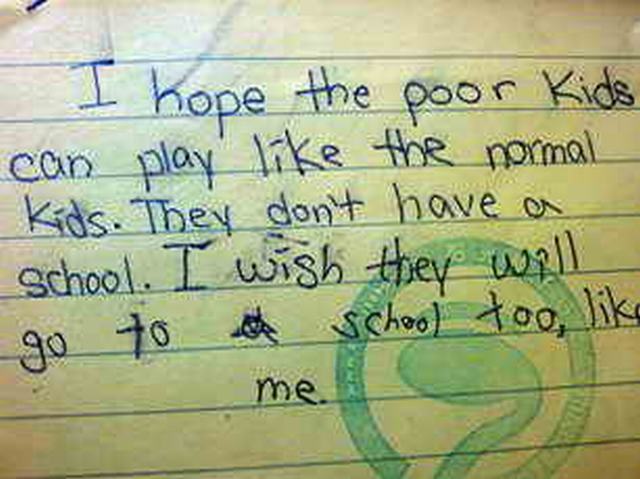 I hope the poor kids
can play like the normal
kids. They don't have a
school. I wish they will
go to school too, like
me.